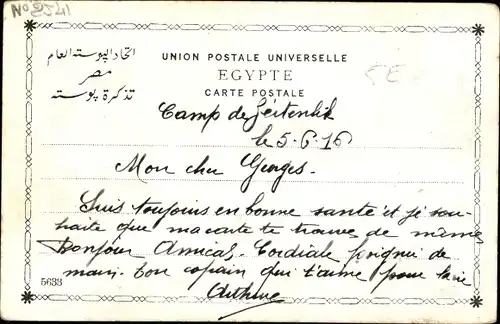 No 2541
اتحاد البوستة العام
مصر
تذكرة بوستة
UNION POSTALE UNIVERSELLE
EGYPTE
CARTE POSTALE
5E
Camp de Zeitenlik
le 5-6-16
Mon cher Georges.
Suis toujours en bonne santé et je sou-
haite que ma carte te trouve de même
Bonjour Amical. Cordiale poignée de
main. Ton copain qui t'aime pour la vie
Arthur
5633